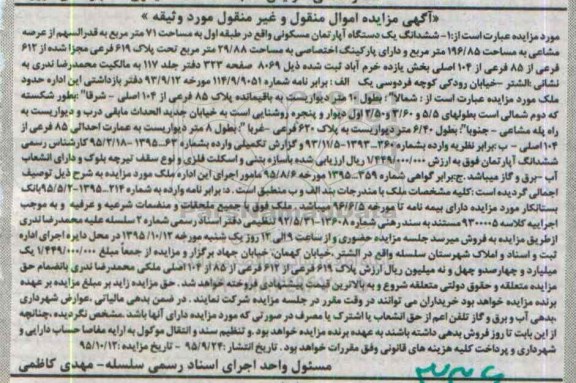 «آگهی مزایده اموال منقول و غیر منقول مورد وثیقه »
مورد مزایده عبارت است از:۱- ششدانگ یک دستگاه آپارتمان مسکونی واقع در طبقه اول به مساحت ۷۱ متر مربع به قدرالسهم از عرصه
مشاعی به مساحت ۱۹۶/۸۵ متر مربع و دارای پارکینگ اختصاصی به مساحت ۲۹/۸۸ متر مربع تحت پلاک ۶۱۹ فرعی مجزا شده از ۶۱۲
فرعی از ۸۵ فرعی از ۱۰۴ اصلی بخش یازده خرم آباد ثبت شده ذیل ۸۰۶۹ صفحه ۳۲۳ دفتر جلد ۱۱۷ به مالکیت محمدرضا ندری به
نشانی :الشتر -خیابان رودکی کوچه فردوسی یک الف : برابر نامه شماره ۱۱۴/۹/۹۰۵۱ مورخه ۹۳/۹/۱۲ دفتر بازداشتی این اداره حدود
ملک مورد مزایده عبارت است از : شمالا": بطول ۱۰ متر دیواریست به باقیمانده پلاک ۸۵ فرعی از ۱۰۴ اصلی - شرقا": بطور شکسته
که دوم شمالی است بطولهای ۵/۵ و ۳/۶۰ و ۲/۵۰ اول دیوار و پنجره روشنایی است به خیابان جدید الحداث مابقی درب و دیواریست به
راه پله مشاعی - جنوبا": بطول ۶/۴۰ متر دیواریست به پلاک ۶۲۰ فرعی -غربا ": بطول ۸ متر دیواریست به عمارت احداثی ۸۵ فرعی از
۱۰۴ اصلی - ب :برابر نظریه وارده بشماره ۳۶۰-۱۳۹۳-۹۳/۱۱/۵ و گزارش تکمیلی وارده بشماره ۶۳-۱۳۹۵-۹۵/۲/۱۸ کارشناس رسمی
ششدانگ آپارتمان فوق به ارزش ۱/۴۴۹/۰۰۰/۰۰۰ ریال ارزیابی شده باسازه بتنی و اسکلت فلزی و نوع سقف تیرچه بلوک و دارای انشعاب
آب - برق و گاز میباشد. ج:برابر گواهی شماره ۳۵۹-۱۳۹۵ مورخ ۹۵/۸/۶ مامور اجرای این اداره ملک مورد مزایده به شرح ذیل توصیف
اجمالی گردیده است :کلیه مشخصات ملک با مندرجات بند الف و ب منطبق است . د: برابر نامه وارده به شماره ۲۱۴-۱۳۹۵-۹۵/۵/۲ بانک
بستانکار مورد مزایده دارای بیمه نامه تا مورخه ۹۶/۶/۵ میباشد. ملک فوق با جمیع ملحقات و منضمات شرعیه و عرفیه و به موجب
اجراییه کلاسه ۹۳۰۰۰۰۵ مستند به سند رهنی شماره ۱۳۶۰۸-۹۲/۵/۳۱ تنظیمی دفتر اسناد رسمی شماره ۲ سلسله علیه محمدرضا ندری
ازطریق مزایده به فروش میرسد جلسه مزایده حضوری و از ساعت ۹ الی ۱۲ روز یک شنبه مورخه ۱۳۹۵/۱۰/۱۲ در محل دایره اجرای اداره
ثبت و اسناد و املاک شهرستان سلسله واقع در الشتر ،خیابان کهمان، خیابان جهاد برگزار و مزایده از جمعاً مبلغ ۱/۴۴۹/۰۰۰/۰۰۰ یک
میلیارد و چهارصدو چهل و نه میلیون ریال ارزش پلاک ۶۱۹ فرعی از ۶۱۲ فرعی از ۸۵ از ۱۰۴ اصلی ملکی محمدرضا ندری بانضمام حق
مزایده متعلقه و حقوق دولتی متعلقه شروع و به بالاترین قیمت پیشنهادی فروخته خواهد شد. حق مزایده زاید بر مبلغ مزایده بر عهده
برنده مزایده خواهد بود خریداران می توانند در وقت مقرر در جلسه مزایده شرکت نمایند . در ضمن بدهی مالیاتی ،عوارض شهرداری
،بدهی آب و برق و گاز تلفن اعم از حق انشعاب یا اشتراک یا مصرف در صورتی که مورد مزایده دارای آنها باشد .مشخص نگردیده ،چنانچه
از این بابت تا روز فروش بدهی داشته باشند به عهده برنده مزایده خواهد بود .و تنظیم سند و انتقال موکول به ارایه مفاصا حساب دارایی و
شهرداری و پرداخت کلیه هزینه های قانونی وفق مقررات خواهد بود. تاریخ انتشار :۹۵/۹/۲۴ - تاریخ مزایده :۹۵/۱۰/۱۲
مسئول واحد اجرای اسناد رسمی سلسله- مهدی کاظمی